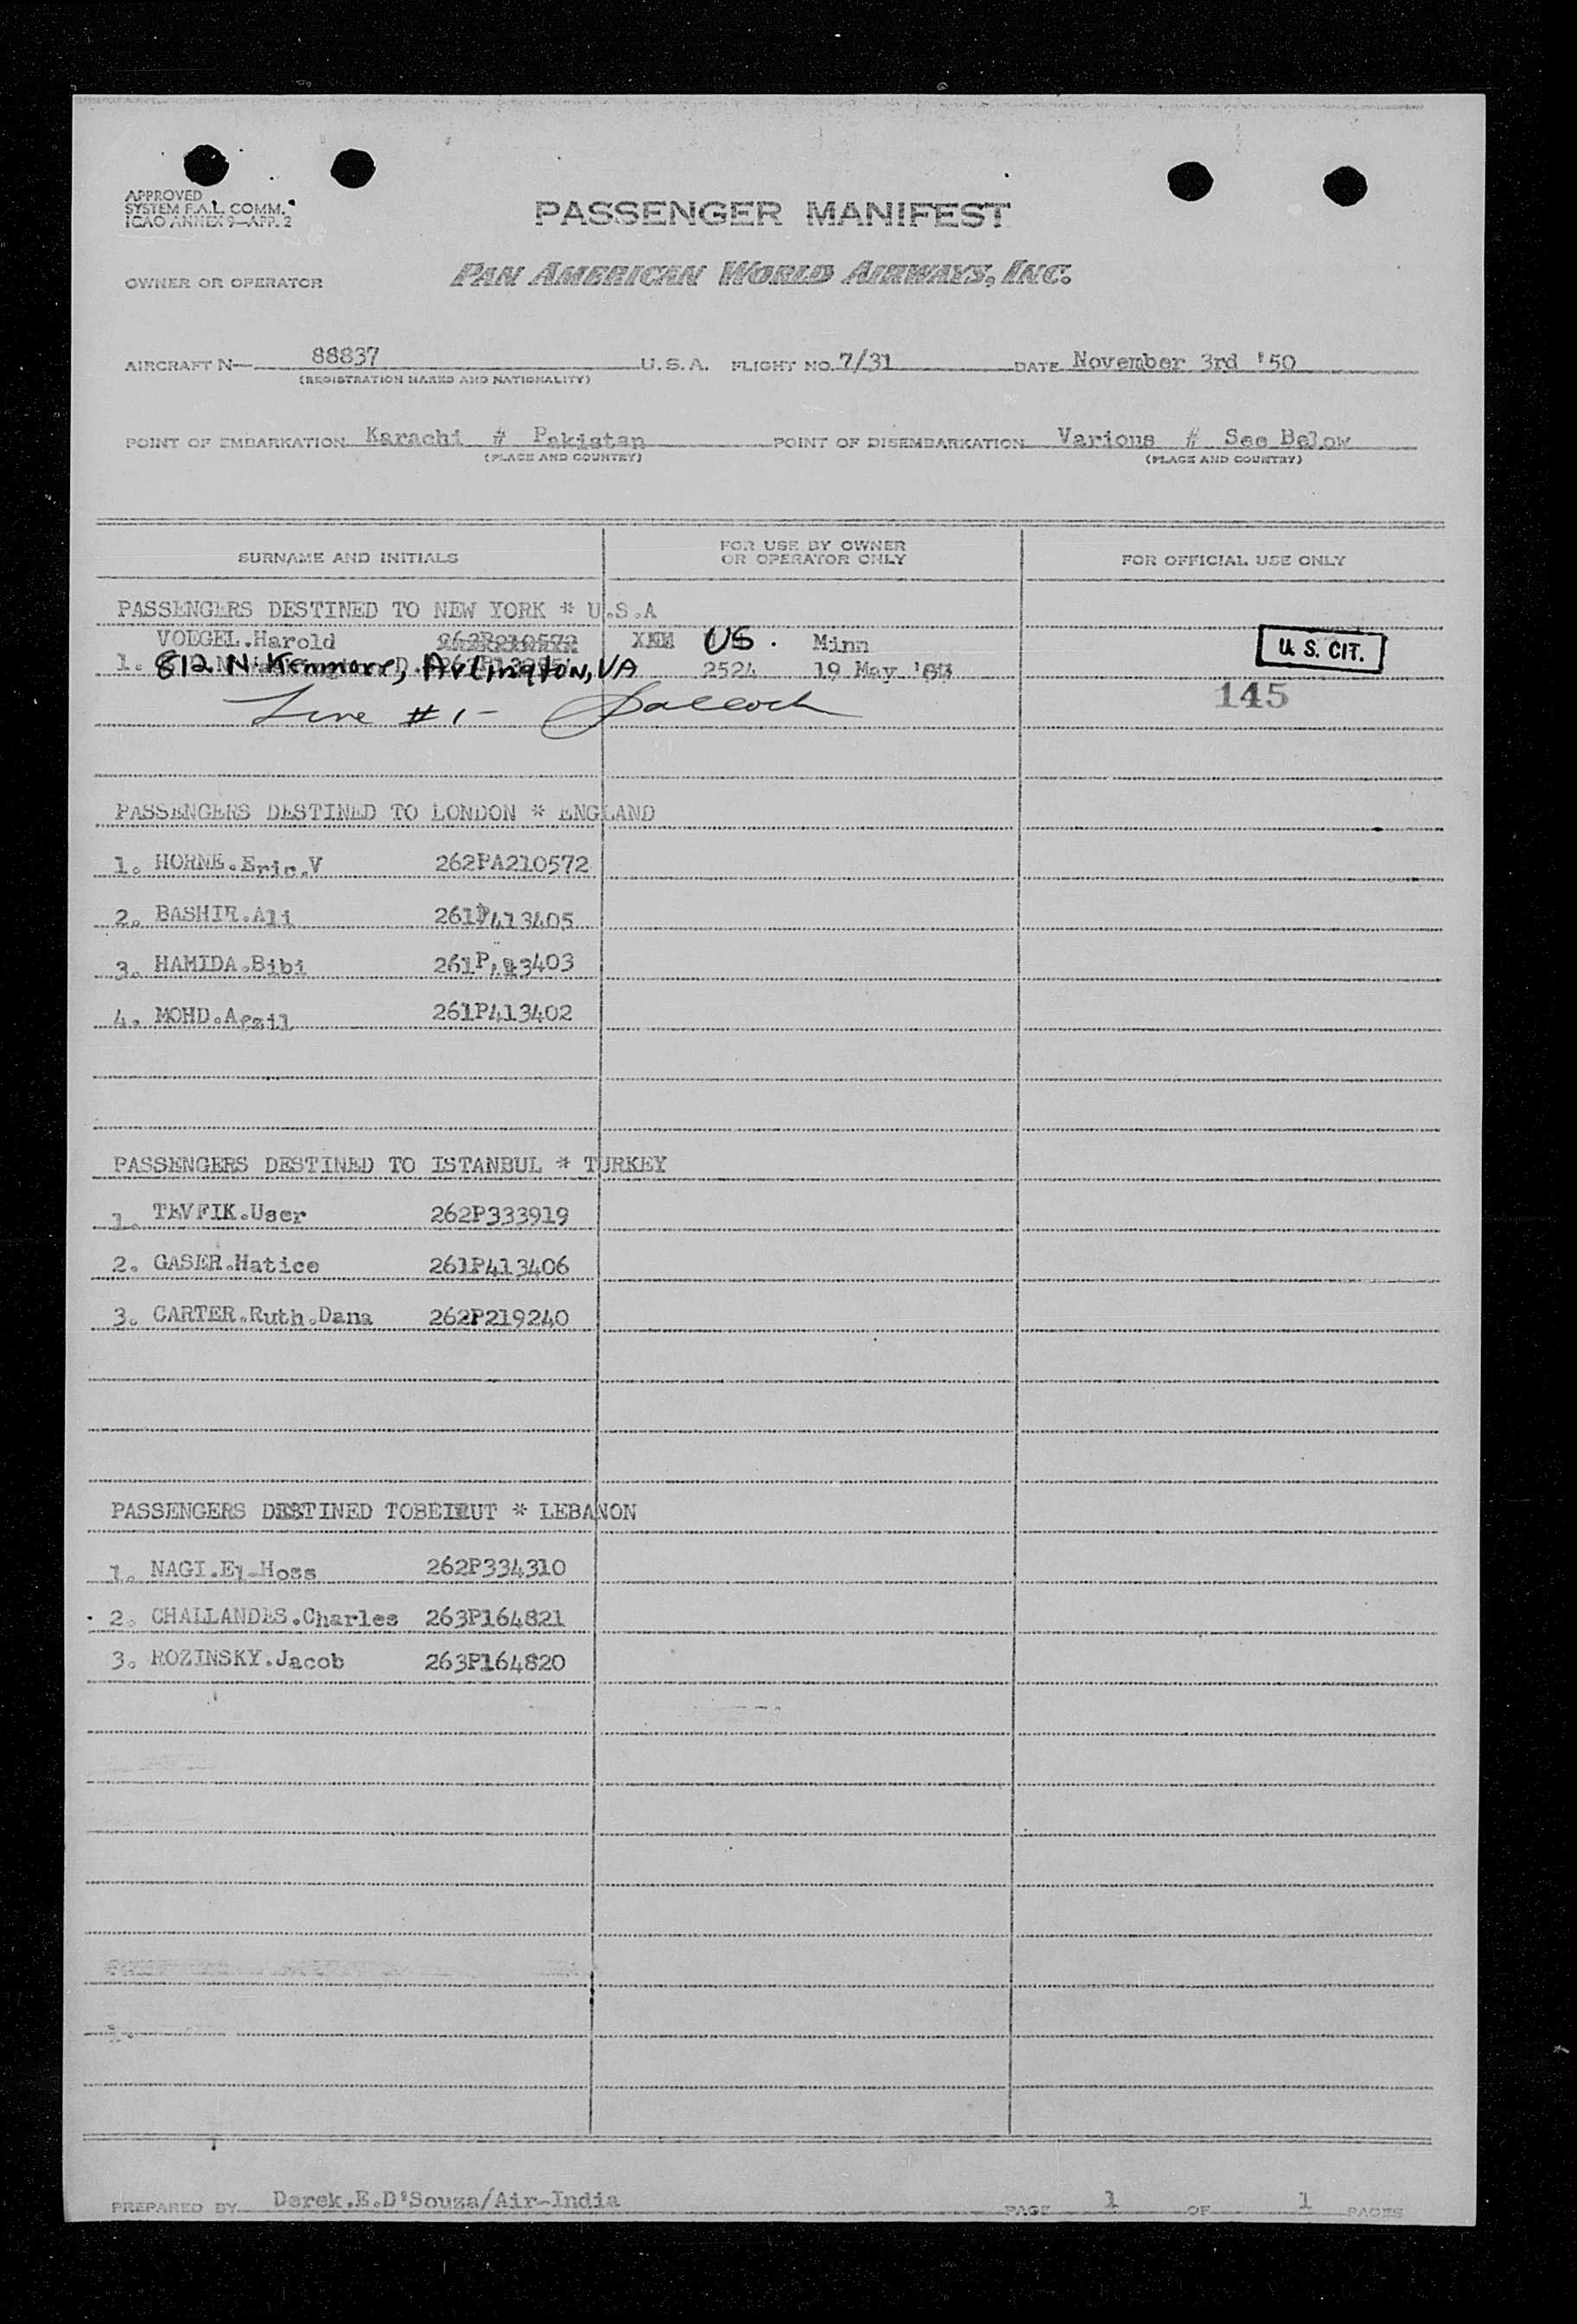 APPROVED
SYSTEM F.A.L. COMM.
ICAO ANNEX 9—APP. 2
PASSENGER MANIFEST
OWNER OR OPERATOR PAN AMERICAN WORLD AIRWAYS, INC.
AIRCRAFT N— 88837 U.S.A. FLIGHT NO. 7/31 DATE November 3rd '50
(REGISTRATION MARKS AND NATIONALITY)
POINT OF EMBARKATION Karachi # Pakistan POINT OF DISEMBARKATION Various # See Below
(PLACE AND COUNTRY) (PLACE AND COUNTRY)
SURNAME AND INITIALS FOR USE BY OWNER OR OPERATOR ONLY FOR OFFICIAL USE ONLY
PASSENGERS DESTINED TO NEW YORK * U.S.A
VOEGEL.Harold US. Minn U. S. CIT.
1. 812 N. Kenmore, Arlington, VA 2524 19 May
Line #1- 145
PASSENGERS DESTINED TO LONDON * ENGLAND
1. HORNE.Eric.V 262PA210572
2. BASHIR.Ali 261P413405
3. HAMIDA.Bibi
4. MOHD.Afzil 261P413402
PASSENGERS DESTINED TO ISTANBUL * TURKEY
1. TEVFIK.User 262P333919
2. GASER.Hatice 261P413406
3. CARTER.Ruth.Dana 262P219240
PASSENGERS DESTINED TOBEIRUT * LEBANON
1. NAGI.El-Hoss 262P334310
2. CHALLANDES.Charles 263P164821
3. ROZINSKY.Jacob 263P164820
PREPARED BY Derek.E.D'Souza/Air-India PAGE 1 OF 1 PAGES